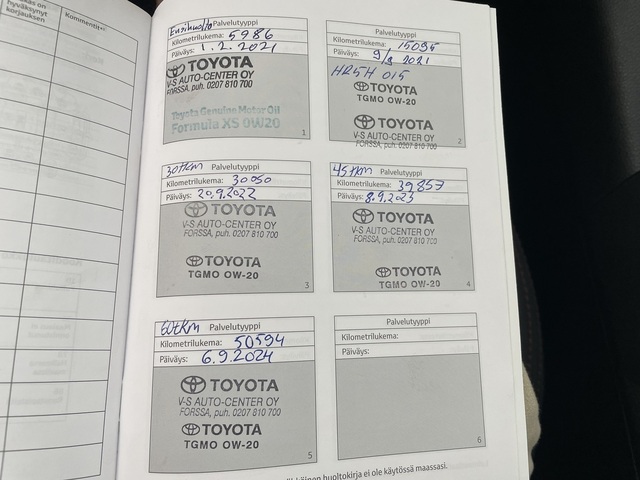 hyväksynyt
korjauksen
Kommentit
Ensihuolto Palvelutyyppi
Kilometrilukema: 5986
Päiväys: 1.2.2021
TOYOTA
V-S AUTO-CENTER OY
FORSSA, puh. 0207 810 700
Toyota Genuine Motor Oil
Formula XS 0W20
1
Palvelutyyppi
Kilometrilukema: 15095
Päiväys: 9/8 2021
HR5H 015
TOYOTA
TGMO OW-20
TOYOTA
V-S AUTO-CENTER OY
FORSSA, puh. 0207 810 700
2
30tkm Palvelutyyppi
Kilometrilukema: 30050
Päiväys: 20.9.2022
TOYOTA
V-S AUTO-CENTER OY
FORSSA, puh. 0207 810 700
TOYOTA
TGMO OW-20
3
45tkm Palvelutyyppi
Kilometrilukema: 39857
Päiväys: 8.9.2023
TOYOTA
V-S AUTO-CENTER OY
FORSSA, puh. 0207 810 700
TOYOTA
TGMO OW-20
4
60tkm Palvelutyyppi
Kilometrilukema: 50594
Päiväys: 6.9.2024
TOYOTA
V-S AUTO-CENTER OY
FORSSA, puh. 0207 810 700
TOYOTA
TGMO OW-20
5
Palvelutyyppi
Kilometrilukema:
Päiväys:
6
huoltokirja ei ole käytössä maassasi.